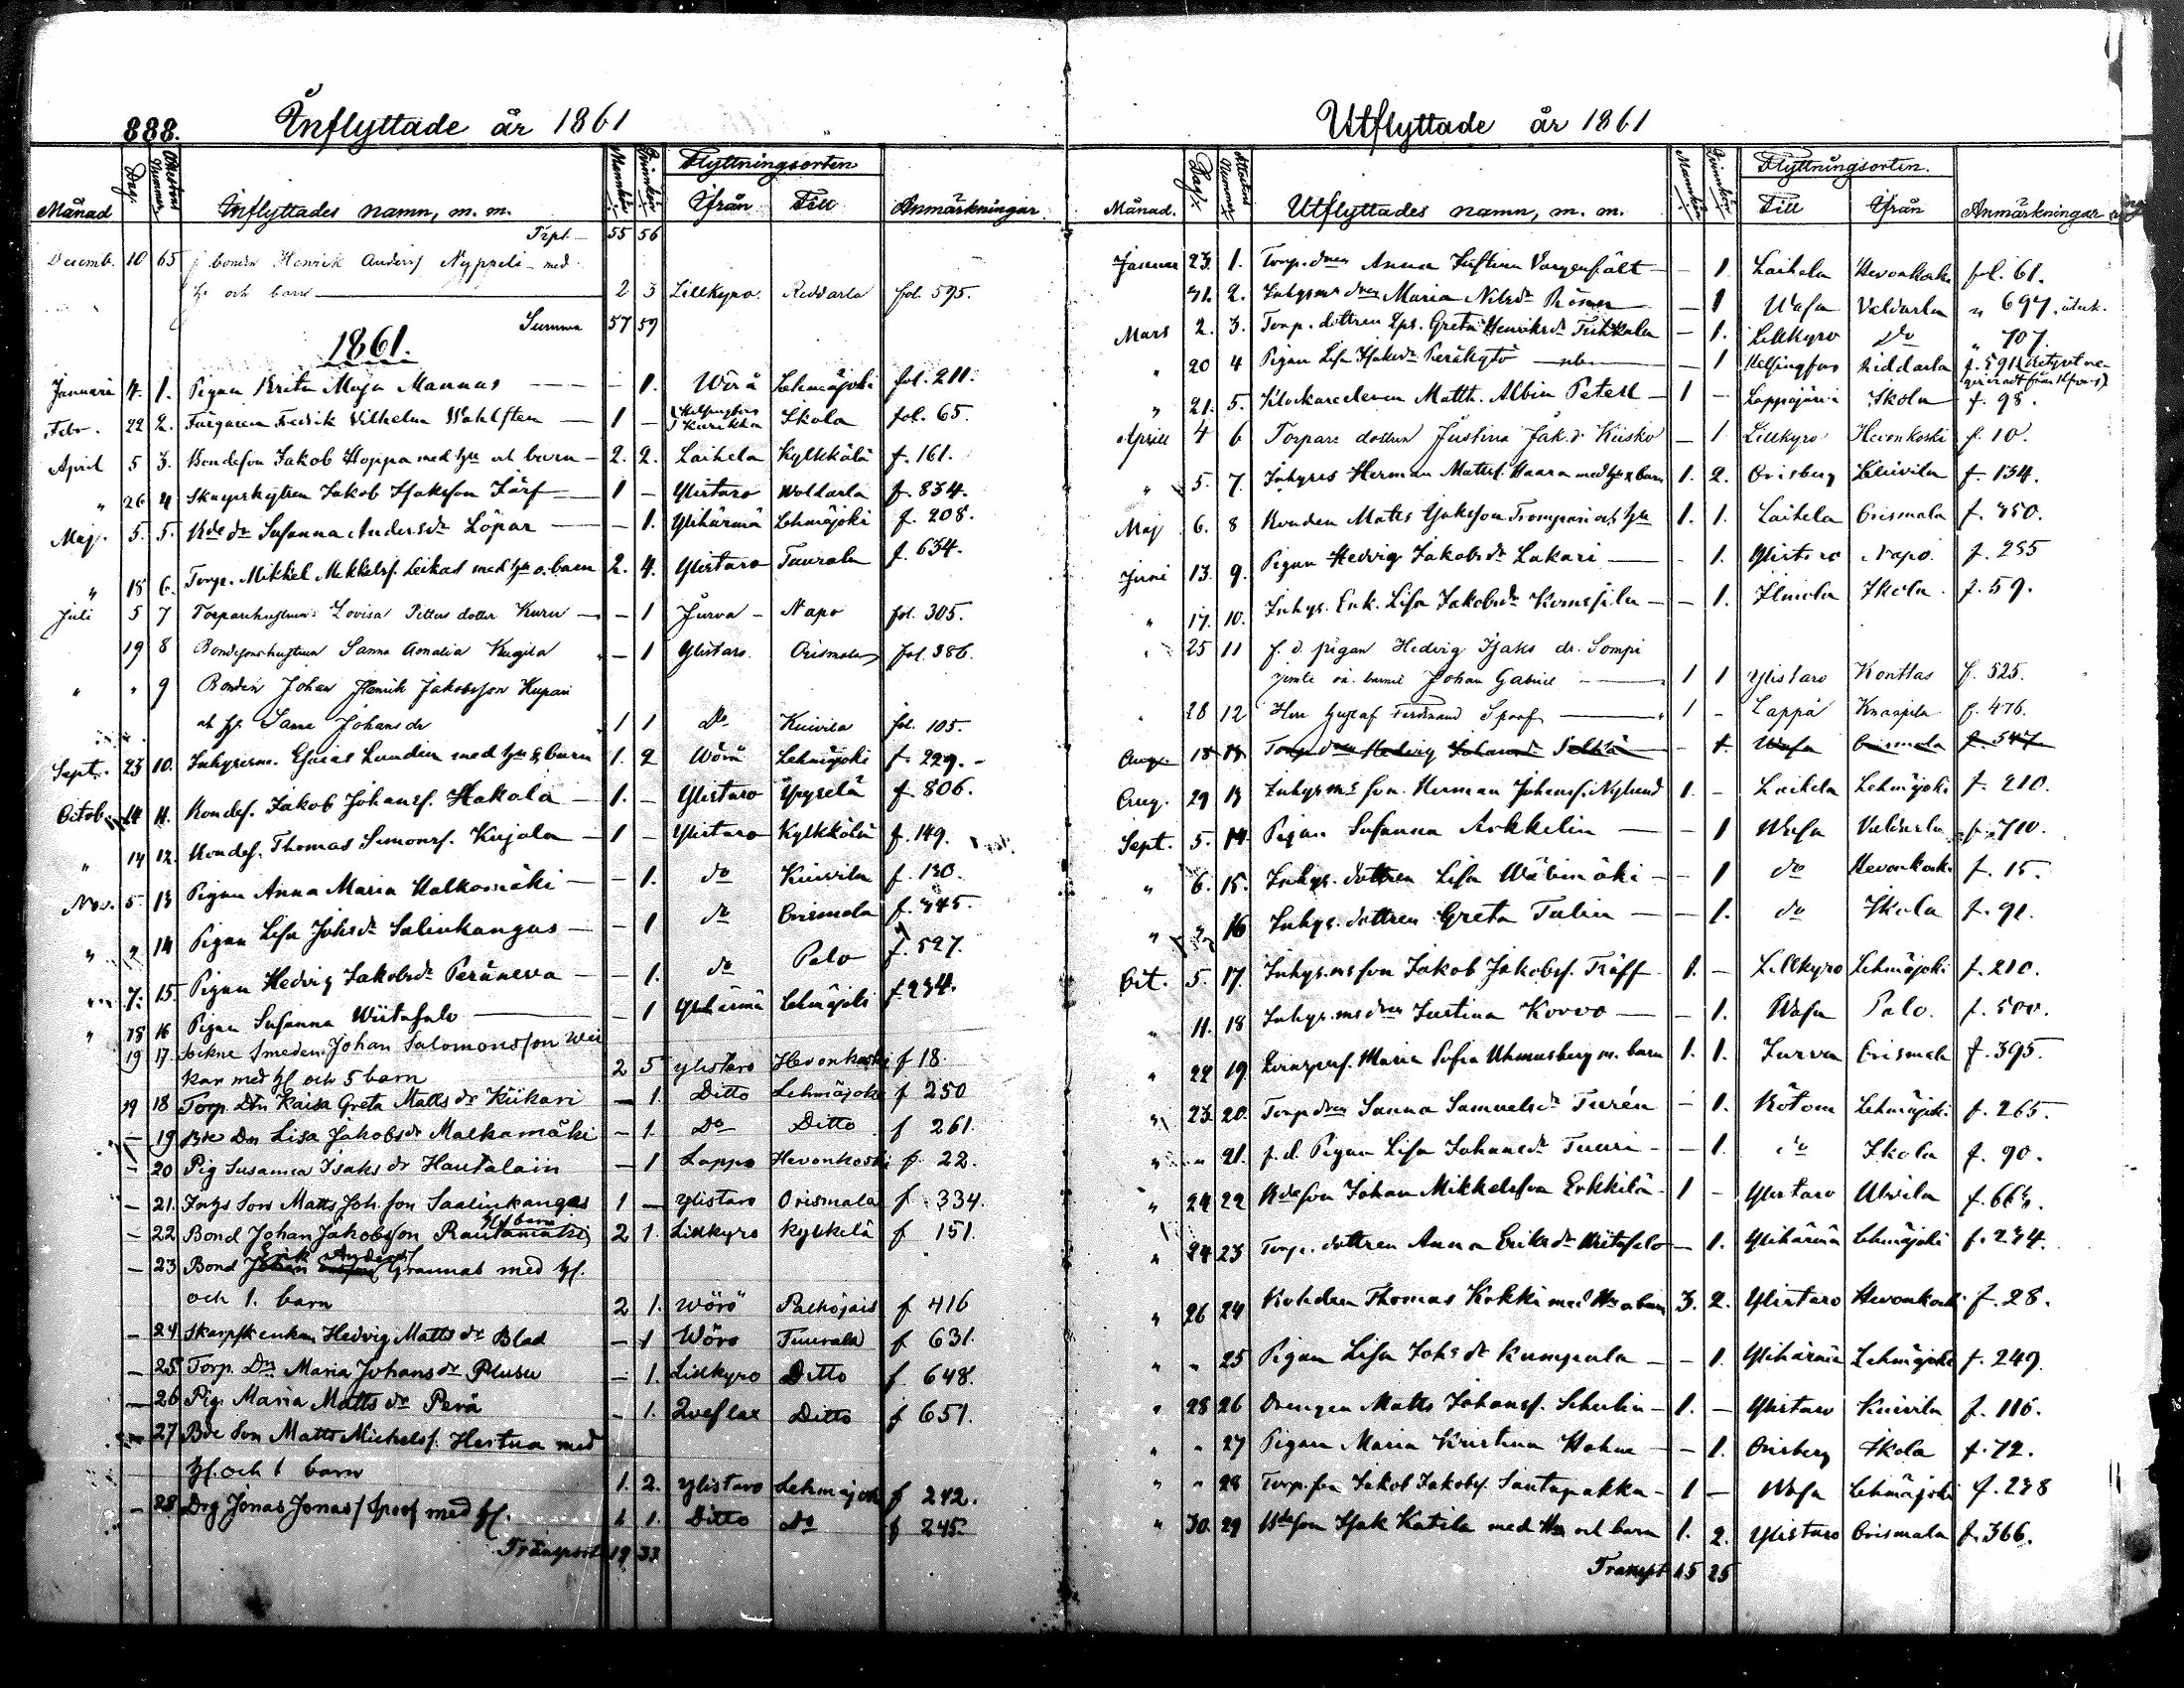 888. Inflyttade år 1861
Månad Dag. Attestens Nummer Inflyttades namn, m. m. Mankön Qvinkön Flyttningsorten Ifrån Till Anmärkningar
Trpt — 55 56
Decemb. 10 65 bonden Henrik Anders Nyppeli med
h. och barn — 2 3 Lillkyro Riddarla fol. 595.
Summa 57 59
1861.
Januari 4. 1. Pigan Brita Maja Mannas — — 1. Wörå Lehmäjoki fol. 211.
Febr. 22 2. Färgaren Fredrik Wilhelm Wahlsten — 1 — Helsingfors Kurikka Ikola fol. 65.
April 5 3. Bondeson Jakob Hoppa med hu och barn — 2. 2. Laihela Kylkkälä f. 161.
" 26 4 Jakob Isaksson Järf — 1 — Ylistaro Waldarla f. 834.
Maj. 5. 5. Bde dr Susanna Andersdr Löpar — — 1. Ylihärmä Lehmäjoki f. 208.
" 18 6. Torp. Mikkel Mikkelsf. Leikas med hu o. barn 2. 4. Ylistaro Tuurala f. 634.
Juli 5 7 Torparehustrun Lovisa Petters dotter Kuru — — 1 Jurva Napo fol. 305.
19 8 Bondesonshustrun Sanna Amalia Kugila — 1 Ylistaro Orismala fol. 386.
" " 9 Bonden Johan Henrik Jakobsson Kupari
och h. Sanna Johans dr 1 1 Do Kuivila fol. 105.
Sept. 23 10. Inhysesm. Esaias Lundin med hu & barn 1. 2 Wörå Lehmäjoki f. 229.
Octob. 14 11. Bondes. Jakob Johansf. Hakola — 1. — Ylistaro Ypyselä f. 806.
" 14 12. Bondes. Thomas Simonsf. Kujala — 1 — Ylistaro Kylkkälä f. 149.
Nov. 5. 13 Pigan Anna Maria Malkomäki — — 1. do Kuivila f. 130.
" 7 14 Pigan Lisa Johsdr Salinkangas — — 1 do Orismala f. 345.
" 7. 15. Pigan Hedvig Jakobsdr Peräneva — — 1. do Palo f. 527.
" 18 16 Pigan Susanna Wiitasalo — — 1 Ylihärmä Lehmäjoki f. 234.
19 17. Sockne Smeden Johan Salomonsson Wei
kar med h och 5 barn 2 5 Ylistaro Hevonkoski f 18.
19 18 Torp. Dtn Kaisa Greta Matts dr Kiikari — 1. Ditto Lehmäjoki f 250
— 19 Bde Dn Lisa Jakobsdr Malkamäki — 1. Do Ditto f 261.
— 20 Pig Susanna Isaks dr Hautalain — 1 Lappo Hevonkoski f. 22.
— 21. Inhys Son Matts Joh. son Saalinkangas 1 — Ylistaro Orismala f. 334.
— 22 Bond Johan Jakobsson Rautamäki 2 1. Lillkyro Kylkkelä f 151.
Erik Andersf
— 23 Bond Grannas med h.
och 1. barn 2 1. Wörö Palhojais f 416
— 24 Skarpsk enkan Hedvig Matts dr Blad — 1 Wöro Tuurala f 631.
— 25 Torp. Dn Maria Johans dr Plusu — 1. Lillkyro Ditto f. 648.
— 26 Pig. Maria Matts dr Perä — 1. Qveflax Ditto f 651.
— 27 Bde Son Matts Michelsf. Hestua med
h. och 1 barn 1. 2. Ylistaro Lehmäjoki f 242.
— 28 Drg Jonas Jonass Spoof med h. 1 1. Ditto Do f 245.
Transport 19 37
Utflyttade år 1861
Månad. Dag. Attestens Nummer Utflyttades namn, m. m. Mankön Qvinkön Flyttningsorten. Till Ifrån Anmärkningar
Januar 23. 1. Torp. dren Anna Justina Vargenfält — — 1 Laihela Hevonkoski fol. 61.
31. 2. Inhysms dren Maria Nilsdr Rösner — — 1 Wasa Valdarla " 697.
Mars 2. 3. Torp. dottren Greta Henriksdr Tuhkala — 1. Lillkyro Do " 707.
" 20 4 Pigan Lisa Isaksdr Peräkytö — 1 Helsingfors Riddarla f. 591
" 21. 5. Klockareeleven Matth. Albin Petell — 1 — Lappajärvi Ikola f. 98.
April 4 6 Torpare dottren Justina Jak. dr Kiisko — 1 Lillkyro Hevonkoski f. 10.
" 5. 7. Inhyses Herman Mattsf. Haara med hu & barn 1. 2. Orisberg Kuivila f. 134.
Maj 6. 8 Bonden Matts Isaksson Trompari och hu 1. 1. Laihela Orismala f. 350.
Juni 13. 9. Pigan Hedvig Jakobsdr Lakari — — 1. Ylistaro Napo f. 285
" 17. 10. Inhys. Enk. Lisa Jakobsdr — — 1. Ilmola Ikola f. 59.
" 25 11 f. d. pigan Hedvig Isaks dr. Sompi
jemte oä. barnet Johan Gabriel — 1 1 Ylistaro Konttas f. 525.
" 28 12 Herr Gustaf Ferdinand Spoof — 1 - Lappå Knaapila f. 476.
Aug. 18 13 Torp. dren Hedvig Johansdr Selkä — 1. Wasa Orismala f. 547
Aug. 29 13 Inhysms son. Herman Johansf. Nylund 1. - Laihela Lehmäjoki f. 210.
Sept. 5. 14 Pigan Susanna Arkkelin — — 1 Wasa Valdarla f. 710.
" 6. 15. Inhys. dottren Lisa Wäbimäki — — 1 do Hevonkoski f. 15.
" " 16 Inhys. dottren Greta Talin — — 1. do Ikola f. 91.
Oct. 5. 17. Inhys.ms son Jakob Jakobsf. Träff 1. — Lillkyro Lehmäjoki f. 210.
" 11. 18 Inhys.ms dren Justina Korvo — — 1. Wasa Palo. f. 500.
" 22 19 Maria Sofia m. barn 1. 1. Jurva Orismala f. 395.
" 23. 20. Torp dren Sanna Samuelsdr Turén — 1. Rötom Lehmäjoki f. 265.
" " 21. f. d. Pigan Lisa Johansdr Tuuri — — 1. do Ikola f. 90.
" 24 22 Bdeson Johan Mikkelsson Erkkilä 1 — Ylistaro Ulvila f. 663.
" 24 23 Torp. dottren Anna Eriksdr Wiitasalo — 1. Ylihärmä Lehmäjoki f. 234.
" 26 24 Thomas Kokki med Hu o barn 3. 2. Ylistaro Hevonkoski f. 28.
" " 25 Pigan Lisa Johs dr Kumpula — — 1. Ylihärmä Lehmäjoki f. 249.
" 28 26 Drengen Matts Johansf. Schulin — 1. — Ylistaro Kuivila f. 116.
" " 27 Pigan Maria Kristina Hahne — — 1. Orisberg Ikola f. 72.
" " 28 Torp. son Jakob Jakobsf. Santapakka — 1 — Wasa Lehmäjoki f. 238
" 30. 29 Bdeson Isak Katila med Hu och barn 1. 2. Ylistaro Orismala f. 366.
Transpt 15 25